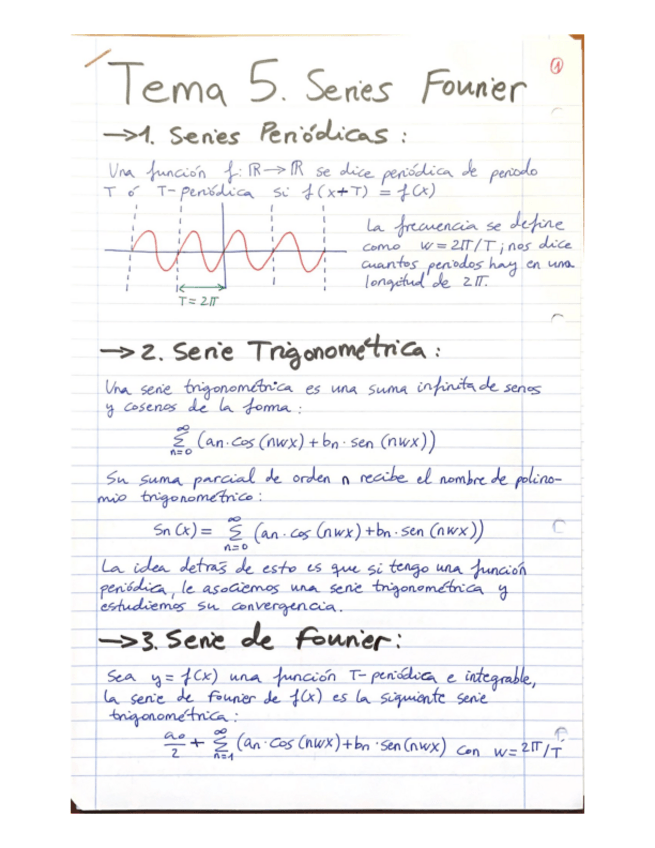 1
Tema 5. Series Fourier
→1. Series Periódicas:
Una función f: ℝ→ℝ se dice periódica de periodo
T ó T-periódica si f(x+T) = f(x)
La frecuencia se define
como w = 2π/T; nos dice
cuantos periodos hay en una
longitud de 2π.
T = 2π
→2. Serie Trigonométrica:
Una serie trigonométrica es una suma infinita de senos
y cosenos de la forma:
∞
Σ (an·cos(nwx)+bn·sen(nwx))
n=0
Su suma parcial de orden n recibe el nombre de polino-
mio trigonométrico:
∞
Sn(x) = Σ (an·cos(nwx)+bn·sen(nwx))
n=0
La idea detrás de esto es que si tengo una función
periódica, le asociemos una serie trigonométrica y
estudiemos su convergencia.
→3. Serie de Fourier:
Sea y = f(x) una función T-periódica e integrable,
la serie de Fourier de f(x) es la siguiente serie
trigonométrica:
∞
a0/2 + Σ (an·cos(nwx)+bn·sen(nwx) con w=2π/T
n=1